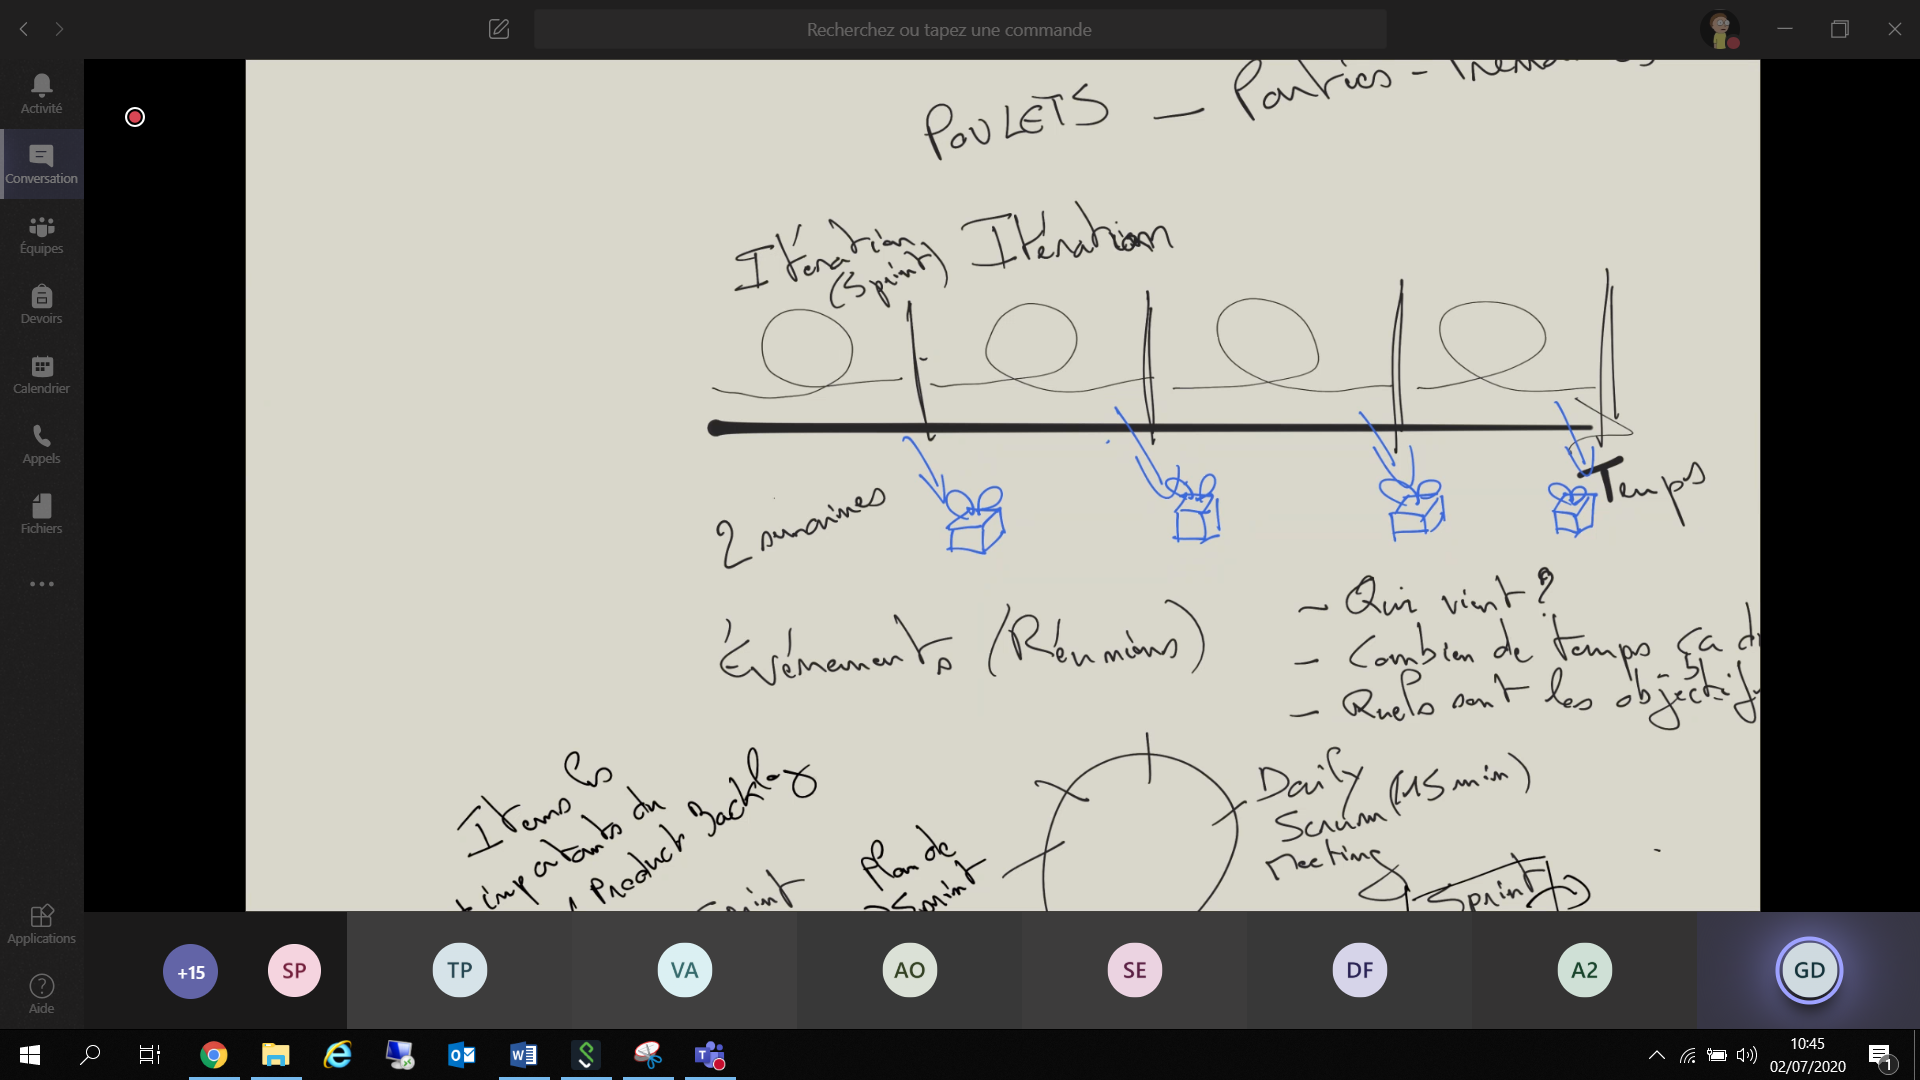 Recherchez ou tapez une commande
Activité
Conversation
Équipes
Devoirs
Calendrier
Appels
Fichiers
Applications
Aide
POULETS —
Itération
(Sprint)
Itération
Temps
2 semaines
Événements (Réunions)
- Qui vient?
- Combien de temps ça
- Quels sont les objectifs
Items les
+ importants du
Product Backlog
Sprint
Plan de
Sprint
Daily
Scrum (15 min)
Meeting
Sprint
+15
SP
TP
VA
AO
SE
DF
A2
GD
10:45
02/07/2020
1